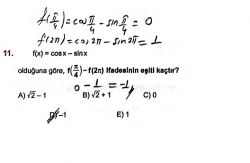 f(π/4) = cos π/4 - sin π/4 = 0
f(2π) = cos 2π - sin 2π = 1
11. f(x) = cosx – sinx
olduğuna göre, f(π/4) – f(2π) ifadesinin eşiti kaçtır?
0 - 1 = -1
A) √2 – 1 B) √2 + 1 C) 0
D) –1 E) 1